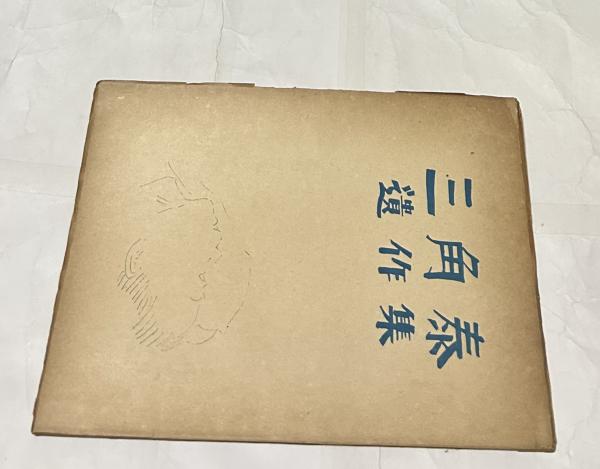 三角泰
遺作集